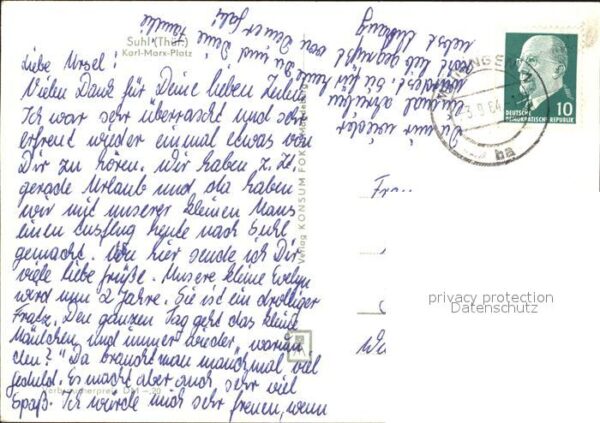 Suhl (Thür.)
Karl-Marx-Platz
Liebe Ursel!
Vielen Dank für Deine lieben Zeilen.
Ich war sehr überrascht und sehr
erfreut wieder einmal etwas von
Dir zu hören. Wir haben z. Zt.
gerade Urlaub und da haben
wir mit unserer kleinen Maus
einen Ausflug heute nach Suhl
gemacht. Von hier sende ich Dir
viele liebe Grüße. Unsere kleine Evelyn
wird nun 2 Jahre. Sie ist ein drolliger
Fratz. Den ganzen Tag geht das kleine
Mäulchen und immer wieder "warum
denn?" Da braucht man manchmal viel
Geduld. Es macht aber auch sehr viel
Spaß. Ich würde mich sehr freuen, wenn
Du mir wieder
einmal schreiben
würdest. Bis für heute
seid
nebst
Du und Deine Familie
von Deiner
Verlag KONSUM FOKO Magdeburg
DM -,20
3.9.64
DEUTSCHE
DEMOKRATISCHE REPUBLIK
10
ba
Fr
We
privacy protection
Datenschutz